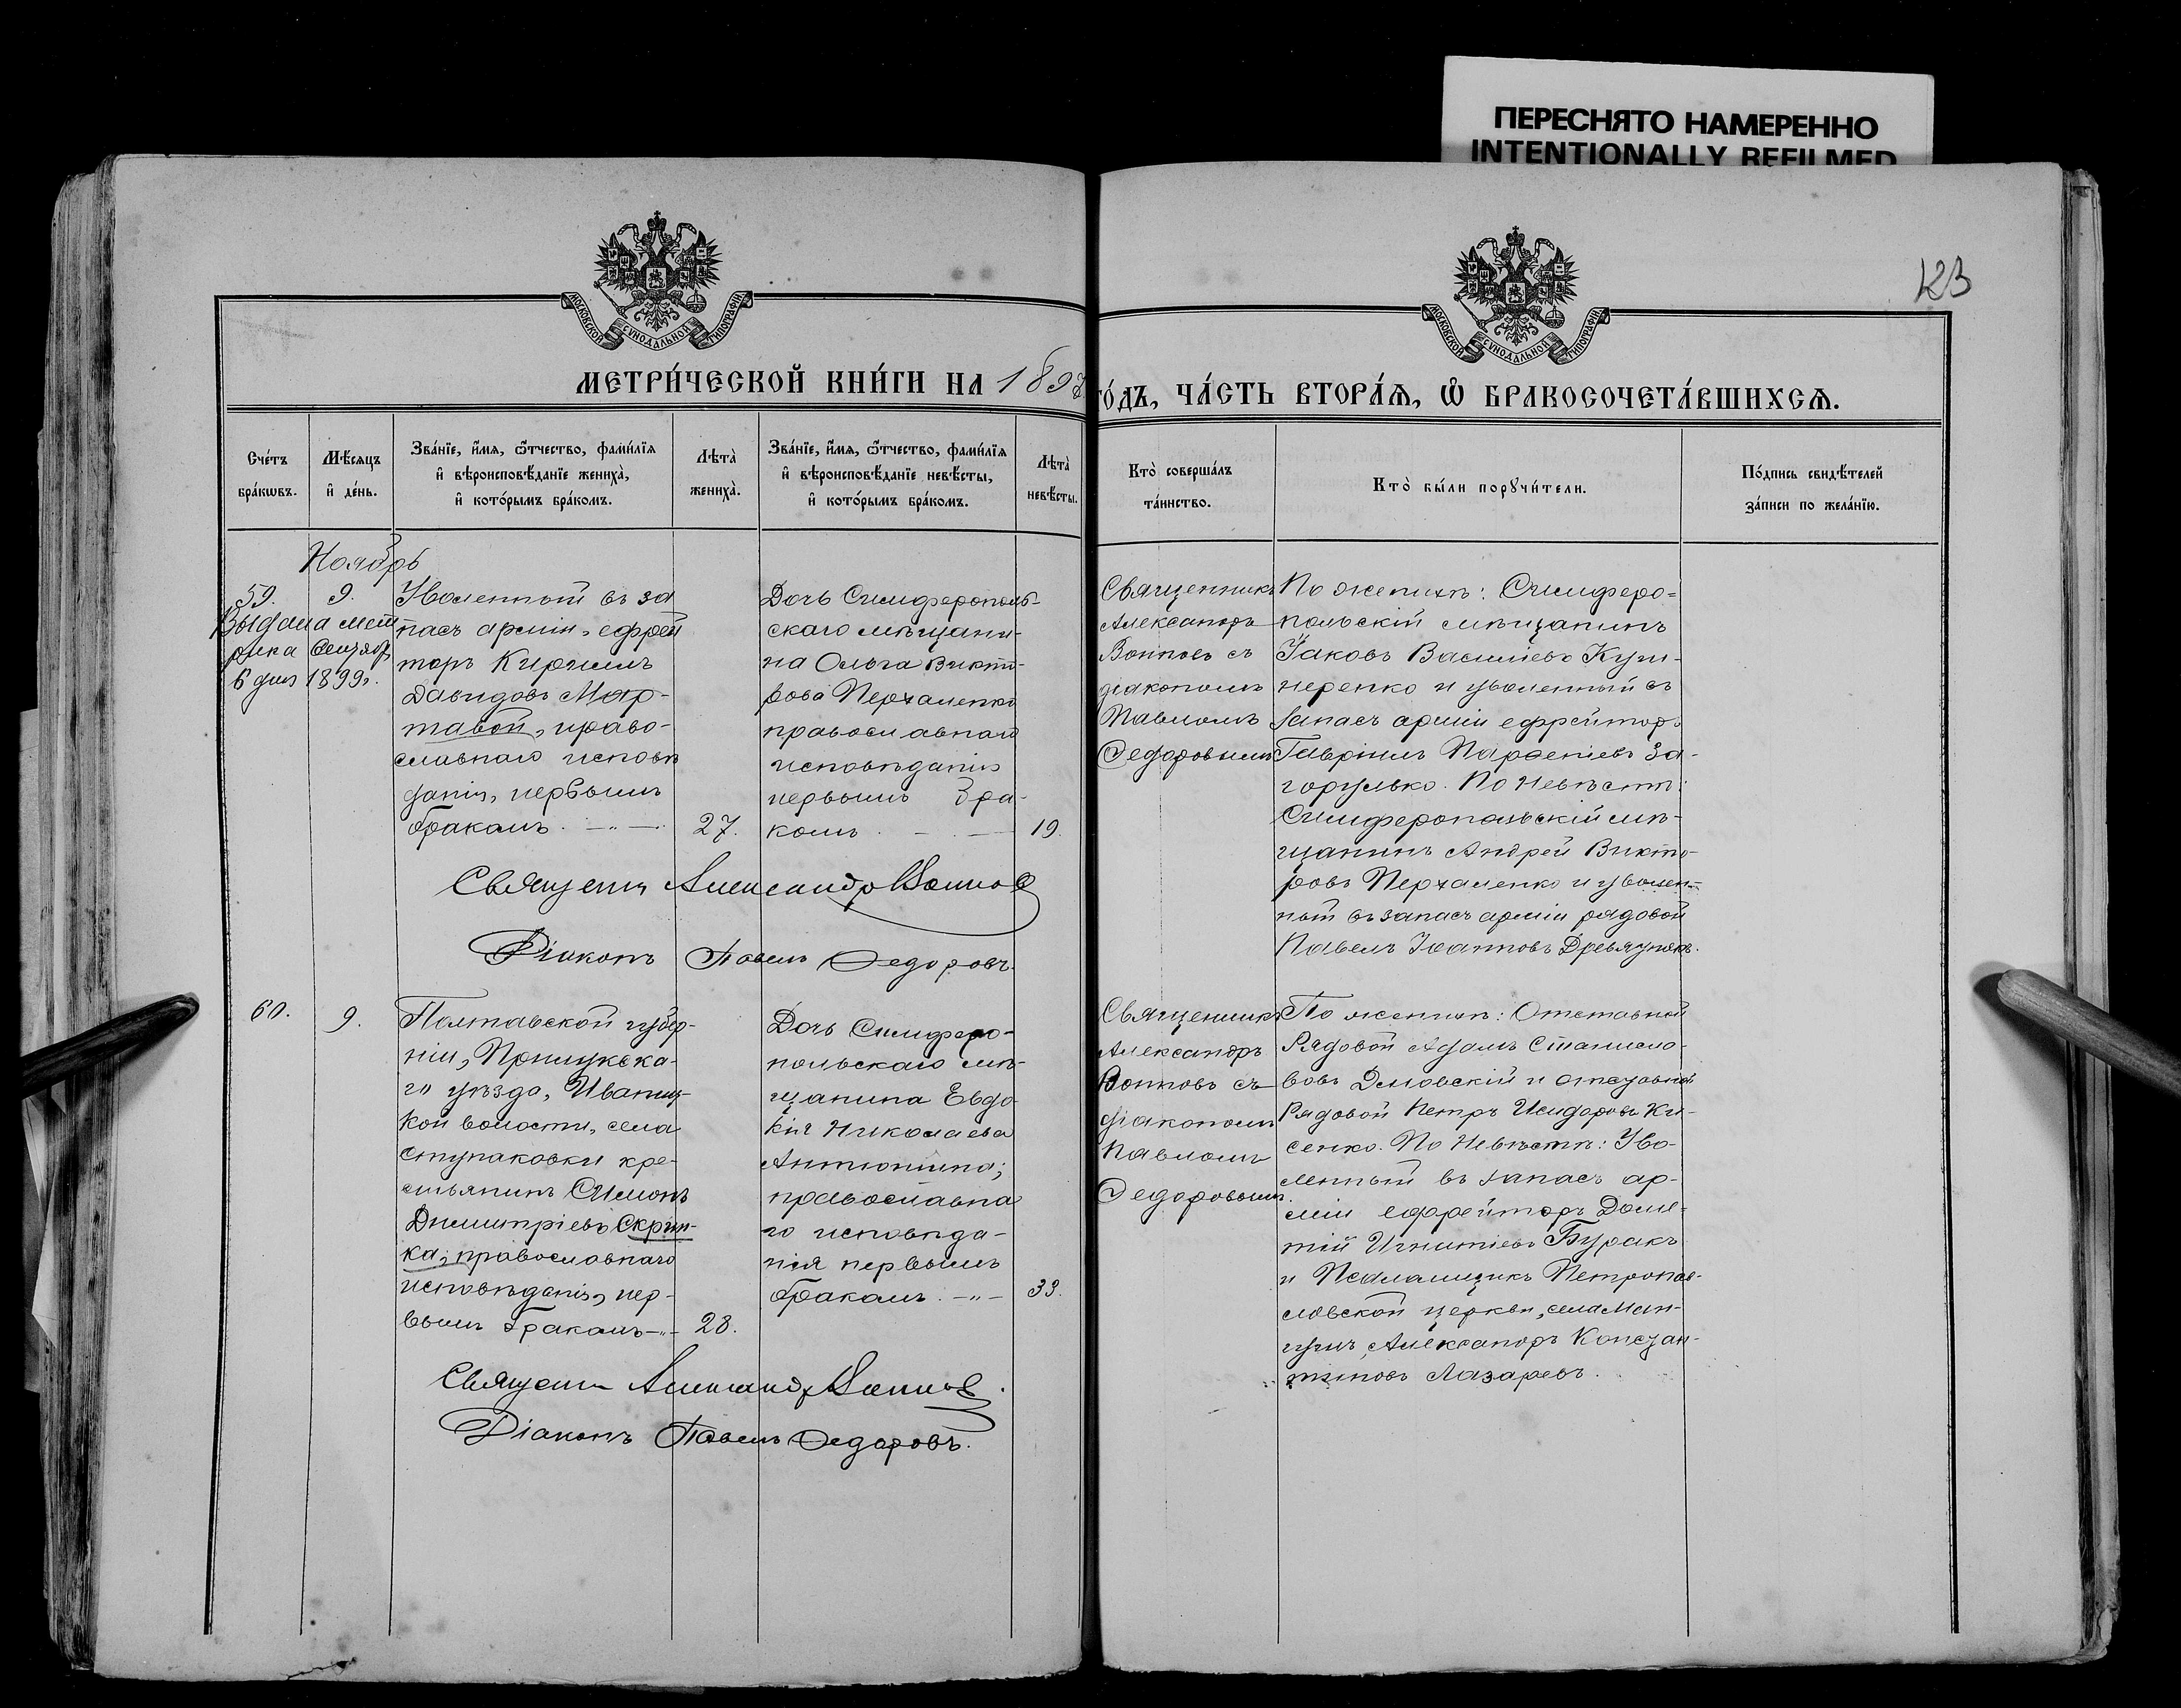 ПЕРЕСНЯТО НАМЕРЕННО
INTENTIONALLY REFILMED
123
МОСКОВСКОЙ СѴНОДАЛЬНОЙ ТИПОГРАФІИ
МОСКОВСКОЙ СѴНОДАЛЬНОЙ ТИПОГРАФІИ
МЕТРИ́ЧЕСКОЙ КНИ́ГИ НА 1897
ГО́ДЪ, ЧА́СТЬ ВТОРА́Ѧ, Ѡ БРАКОСОЧЕТА́ВШИХСѦ.
Сче́тъ
бра́кѡвъ.
Мѣ́сяцъ
и҆ де́нь.
Зва́нїе, и҆́мя, ѻ҆́тчество, фами́лїя
и҆ вѣроисповѣ́данїе жениха̀,
и҆ кото́рымъ бра́комъ.
Лѣта̀
жениха̀.
Зва́нїе, и҆́мя, ѻ҆́тчество, фами́лїя
и҆ вѣроисповѣ́данїе невѣ́сты,
и҆ кото́рымъ бра́комъ.
Лѣта̀
невѣ́сты.
Кто̀ соверша́лъ
та́инство.
Кто̀ бы́ли порꙋчи́тели.
По́дпись свидѣ́телей
за́писи по жела́нїю.
Ноябрь
59.
9.
Выдана мет
рика Сентяб
6 дня 1899г.
Уволенный въ за
пасъ арміи, ефрей
торъ Кириллъ
Давидовъ Мор-
тавой, право-
славнаго исповѣ
данія, первымъ
бракомъ. —"—
27.
Дочь Симферополь-
скаго мѣщани-
на Ольга Викто-
рова Перхаленко
православнаго
исповѣданія
первымъ бра-
комъ. — . —
19.
Священникъ
Александръ
Воиновъ съ
діакономъ
Павломъ
Ѳедоровымъ
По женихѣ: Симферо=
польскій мѣщанинъ
Іаковъ Васильевъ Куш-
неренко и уволенный въ
запасъ арміи ефрейторъ
Гавріилъ Парѳеніевъ За-
горулько. По невѣстѣ:
Симферопольскій мѣ-
щанинъ Андрей Викто-
ровъ Перхаленко и уволен-
ный въ запасъ арміи рядовой
Павелъ Іоанновъ
Священникъ Александръ Воиновъ
Діаконъ Павелъ Ѳедоровъ.
60.
9.
Полтавской губер-
ніи, Прилукска-
го уѣзда, Иваниц-
кой волости, села
Ступаковки кре-
стьянинъ Симонъ
Димитріевъ Скрип-
ка, православнаго
исповѣданія, пер-
вымъ бракомъ —"—
28.
Дочь Симферо-
польскаго мѣ-
щанина Евдо-
кія Николаева
Антюшина;
православна
го исповѣда-
нія первымъ
бракомъ. —"—
33.
Священникъ
Александръ
Воиновъ съ
діакономъ
Павломъ
Ѳедоровымъ.
По женихѣ: Отставной
Рядовой Адамъ Станисла-
вовъ и отставной
Рядовой Петръ Исидоровъ Ки-
сенко. По Невѣстѣ: Уво-
ленный въ запасъ ар-
міи ефрейторъ Доме-
тій Игнатіевъ Буракъ
и Псаломщикъ Петропав-
ловской церкви, села Ман-
гушъ, Александръ Констан-
тиновъ Лазаревъ.
Священникъ Александръ Воиновъ.
Діаконъ Павелъ Ѳедоровъ.